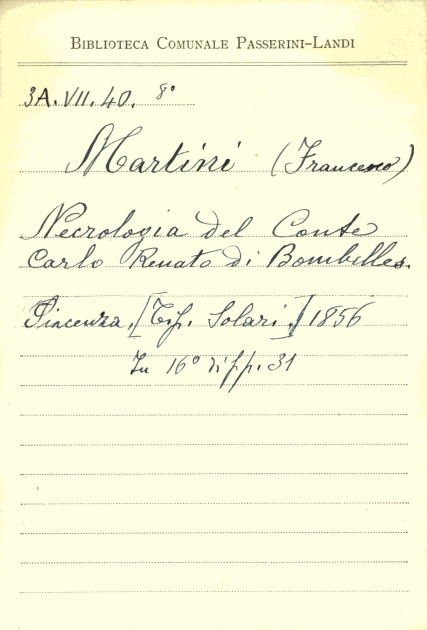 BIBLIOTECA COMUNALE PASSERINI-LANDI
3A.VII.40. 8°
Martini (Francesco)
Necrologia del Conte
Carlo Renato di Bombelles.
Piacenza, [Tip. Solari.] 1856
In 16° di pp. 31